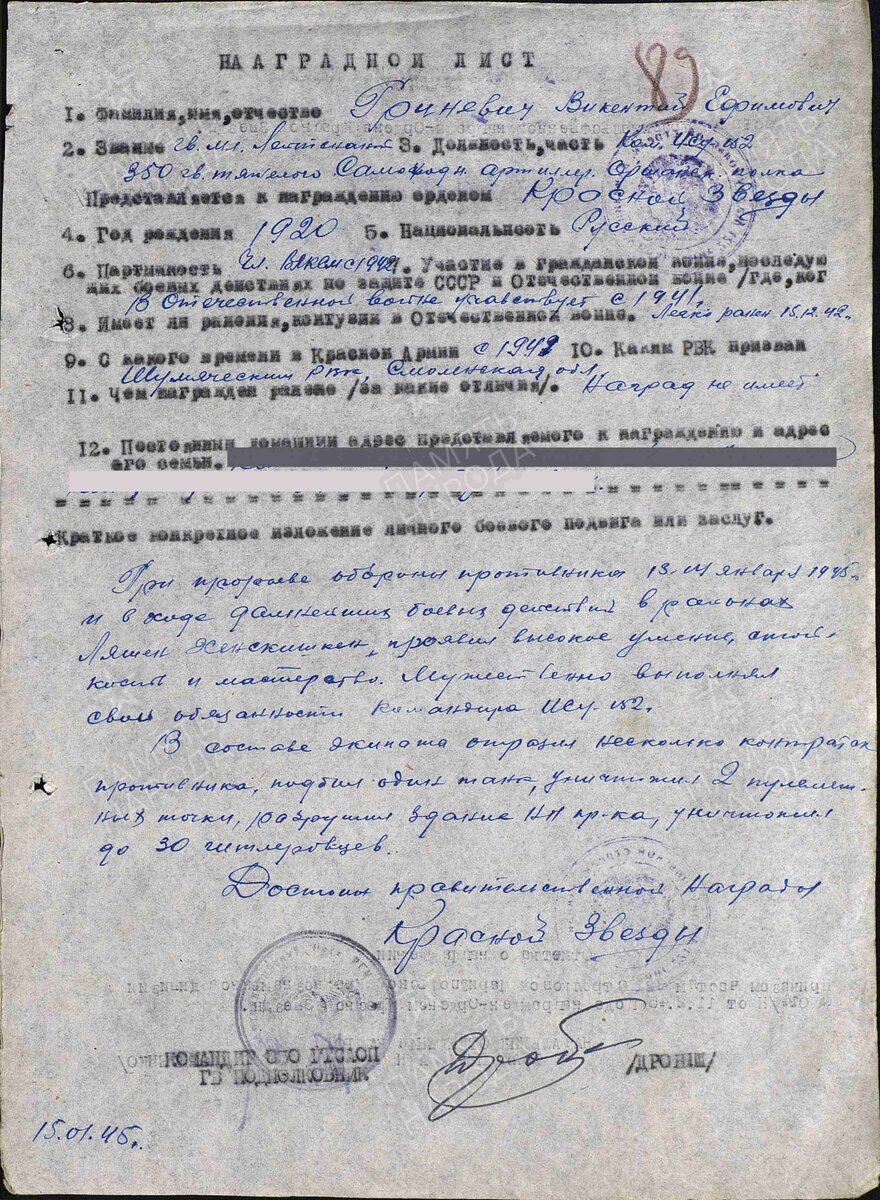 НААГРАДНОЙ ЛИСТ
89
1. Фамилия,имя,отчество Гриневич Викентий Ефимович
2. Звание гв. мл. Лейтенант 3. Должность,часть Ком. ИСУ-152
350 гв. тяжелого Самоходн. артиллер. Оршанск. полка
Представляется к награждению орденом Красной Звезды
4. Год рождения 1920 5. Национальность Русский
6. Партийность Чл. ВЛКСМ с 1942. Участие в гражданской войне,последую
щих боевых действиях по защите СССР и Отечественной войне /где,ког
В Отечественной войне участвует с 1941г.
8. Имеет ли ранения,контузии в Отечественной войне. Легко ранен 15.12.42г.
9. С какого времени в Красной Армии с 1941 10. Каким РВК призван
Шумяческим РВК, Смоленская обл.
11. Чем награжден ранее /за какие отличия/. Наград не имеет
12. Постоянный домашний адрес представляемого к награждению и адрес
его семьи.
Краткое конкретное изложение личного боевого подвига или заслуг.
При прорыве обороны противника 13-14 января 1945г.
и в ходе дальнейших боевых действий в районах
Ляшен Хенскишкен, проявил высокое умение, стой-
кость и мастерство. Мужественно выполнял
свои обязанности командира ИСУ-152.
В составе экипажа отразил несколько контратак
противника, подбил один танк, уничтожил 2 пулемет-
ных точки, разрушил здание НП пр-ка, уничтожил
до 30 гитлеровцев.
Достоин правительственной Награды
Красной Звезды
КОМАНДИР 350 ГТСАОП
ГВ ПОДПОЛКОВНИК /ДРОБИШ/
15.01.45г.
ПАМЯТЬ НАРОДА